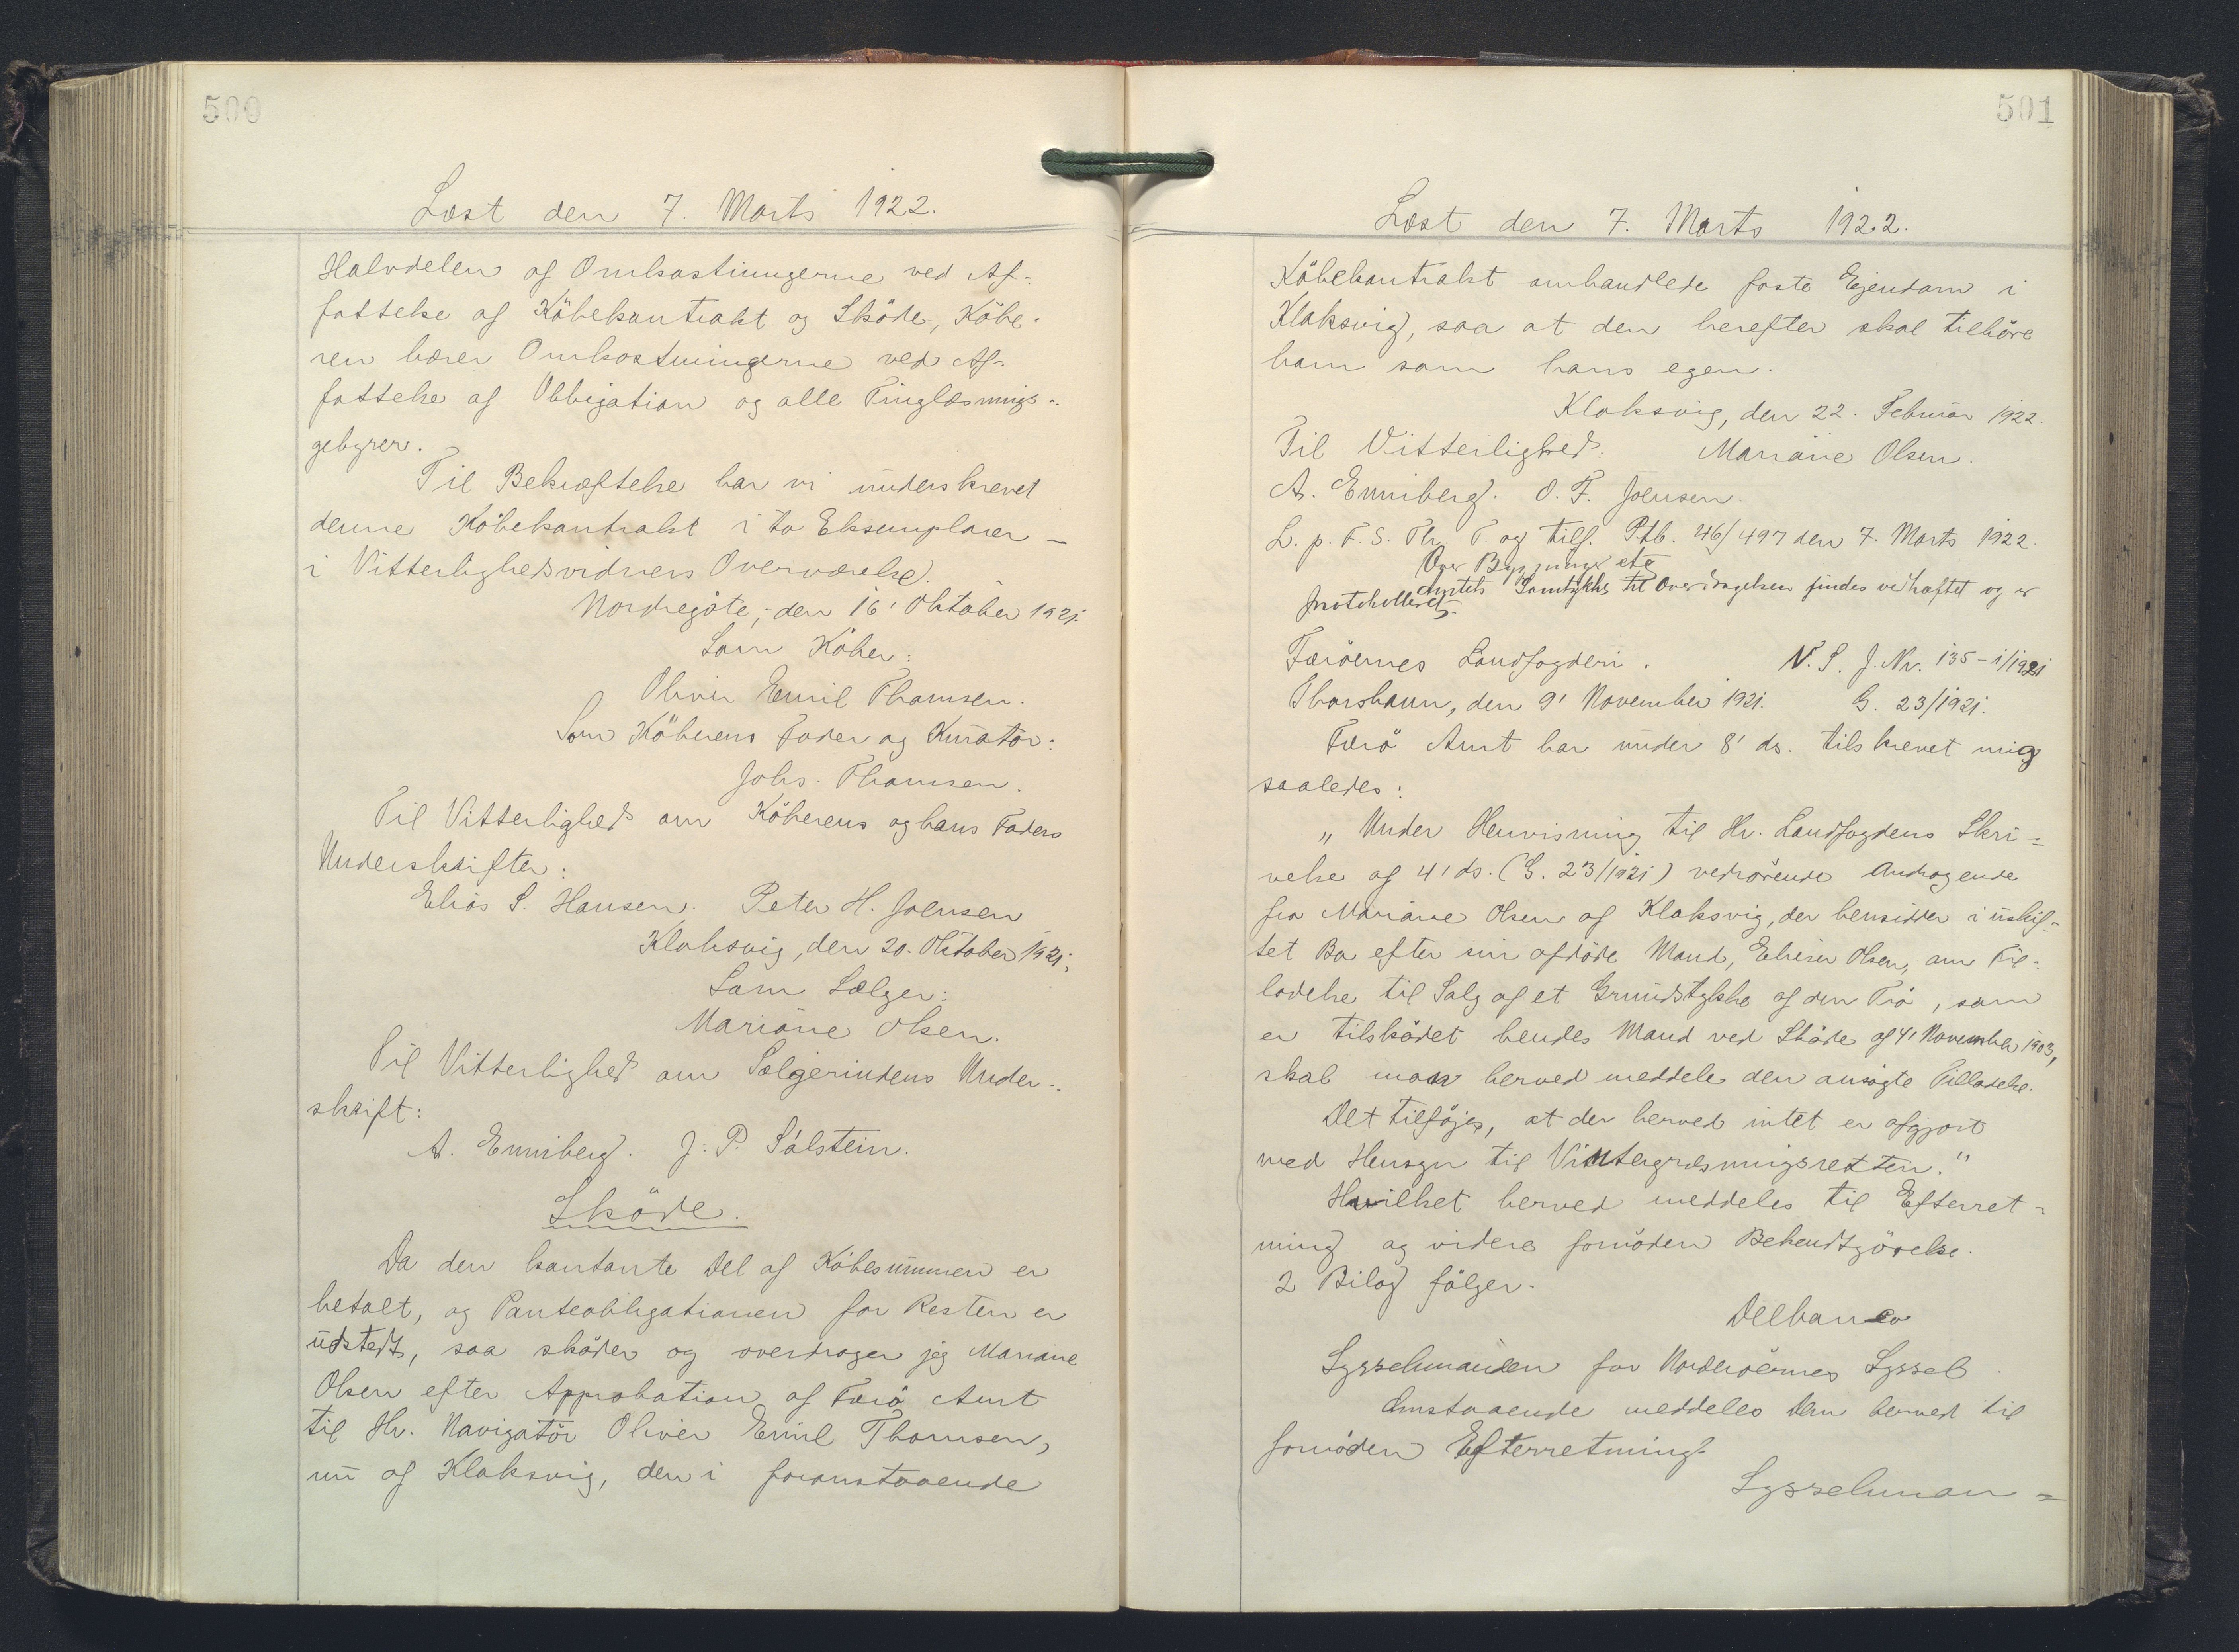 500
Læst den 7. Marts 1922.
Halvdelen af Omkostningerne ved Af-
fattelse af Köbekontrakt og Sköde, Köbe-
ren bærer Omkostningerne ved Af-
fattelse af Obligation og alle Tinglæsnings-
gebyrer.
Til Bekræftelse har vi underskrevet
denne Köbekontrakt i to Eksemplarer -
i Vitterlighedsvidners Overværelse.
Nordregöte, den 16' Oktober 1921.
Som Köber:
Oliver Emil Thomsen.
Som Köberens Fader og Kurator:
Johs. Thomsen.
Til Vitterlighed om Köberens og hans Faders
Underskrifter:
Elias S. Hansen. Peter H. Joensen
Klaksvig, den 20. Oktober 1921.
Som Sælger:
Mariane Olsen.
Til Vitterlighed om Sælgerindens Under-
skrift:
A. Enniberg. J. P. Sólstein.
Sköde.
Da den kontante Del af Köbesummen er
betalt, og Panteobligationen for Resten er
udstedt, saa sköder og overdrager jeg Mariane
Olsen efter Approbation af Færö Amt
til Hr. Navigatör Oliver Emil Thomsen,
nu af Klaksvig, den i foranstaaende
501
Læst den 7. Marts 1922.
Köbekontrakt omhandlede faste Ejendom i
Klaksvig, saa at den herefter skal tilhöre
ham som hans egen.
Klaksvig, den 22. Februar 1922.
Til Vitterlighed: Mariane Olsen.
A. Enniberg. O. F. Joensen.
L. p. F. S. Thr. T. og tilf. Ptb. 46/497 den 7. Marts 1922.
Over Bygninger etc
Amtets Samtykke til Overdragelsen findes vedhæftet og er
protokolleret.
Færöernes Landfogderi. N. S. J. Nr. 135-1/1921
Thorshavn, den 9' November 1921. G. 23/1921.
Færö Amt har under 8' ds. tilskrevet mig
saaledes:
"Under Henvisning til Hr. Landfogdens Skri=
velse af 4' ds. (G. 23/1921) vedrörende Andragende
fra Mariane Olsen af Klaksvig, der hensidder i uskif-
tet Bo efter sin afdöde Mand, Elieser Olsen, om Til-
ladelse til Salg af et Grundstykke af den Trö, som
er tilsködet hendes Mand ved Sköde af 4' November 1903,
skal man herved meddele den ansögte Tilladelse.
Det tilföjes, at der herved intet er afgjort
med Hensyn til Vintergræsningsretten."
Hvilket herved meddeles til Efterret-
ning og videre fornöden Bekendtgörelse.
2 Bilag fölger.
Delbanco
Sysselmanden for Norderöernes Syssel
Omstaaende meddeles Dem herved til
fornöden Efterretning.
Sysselman=